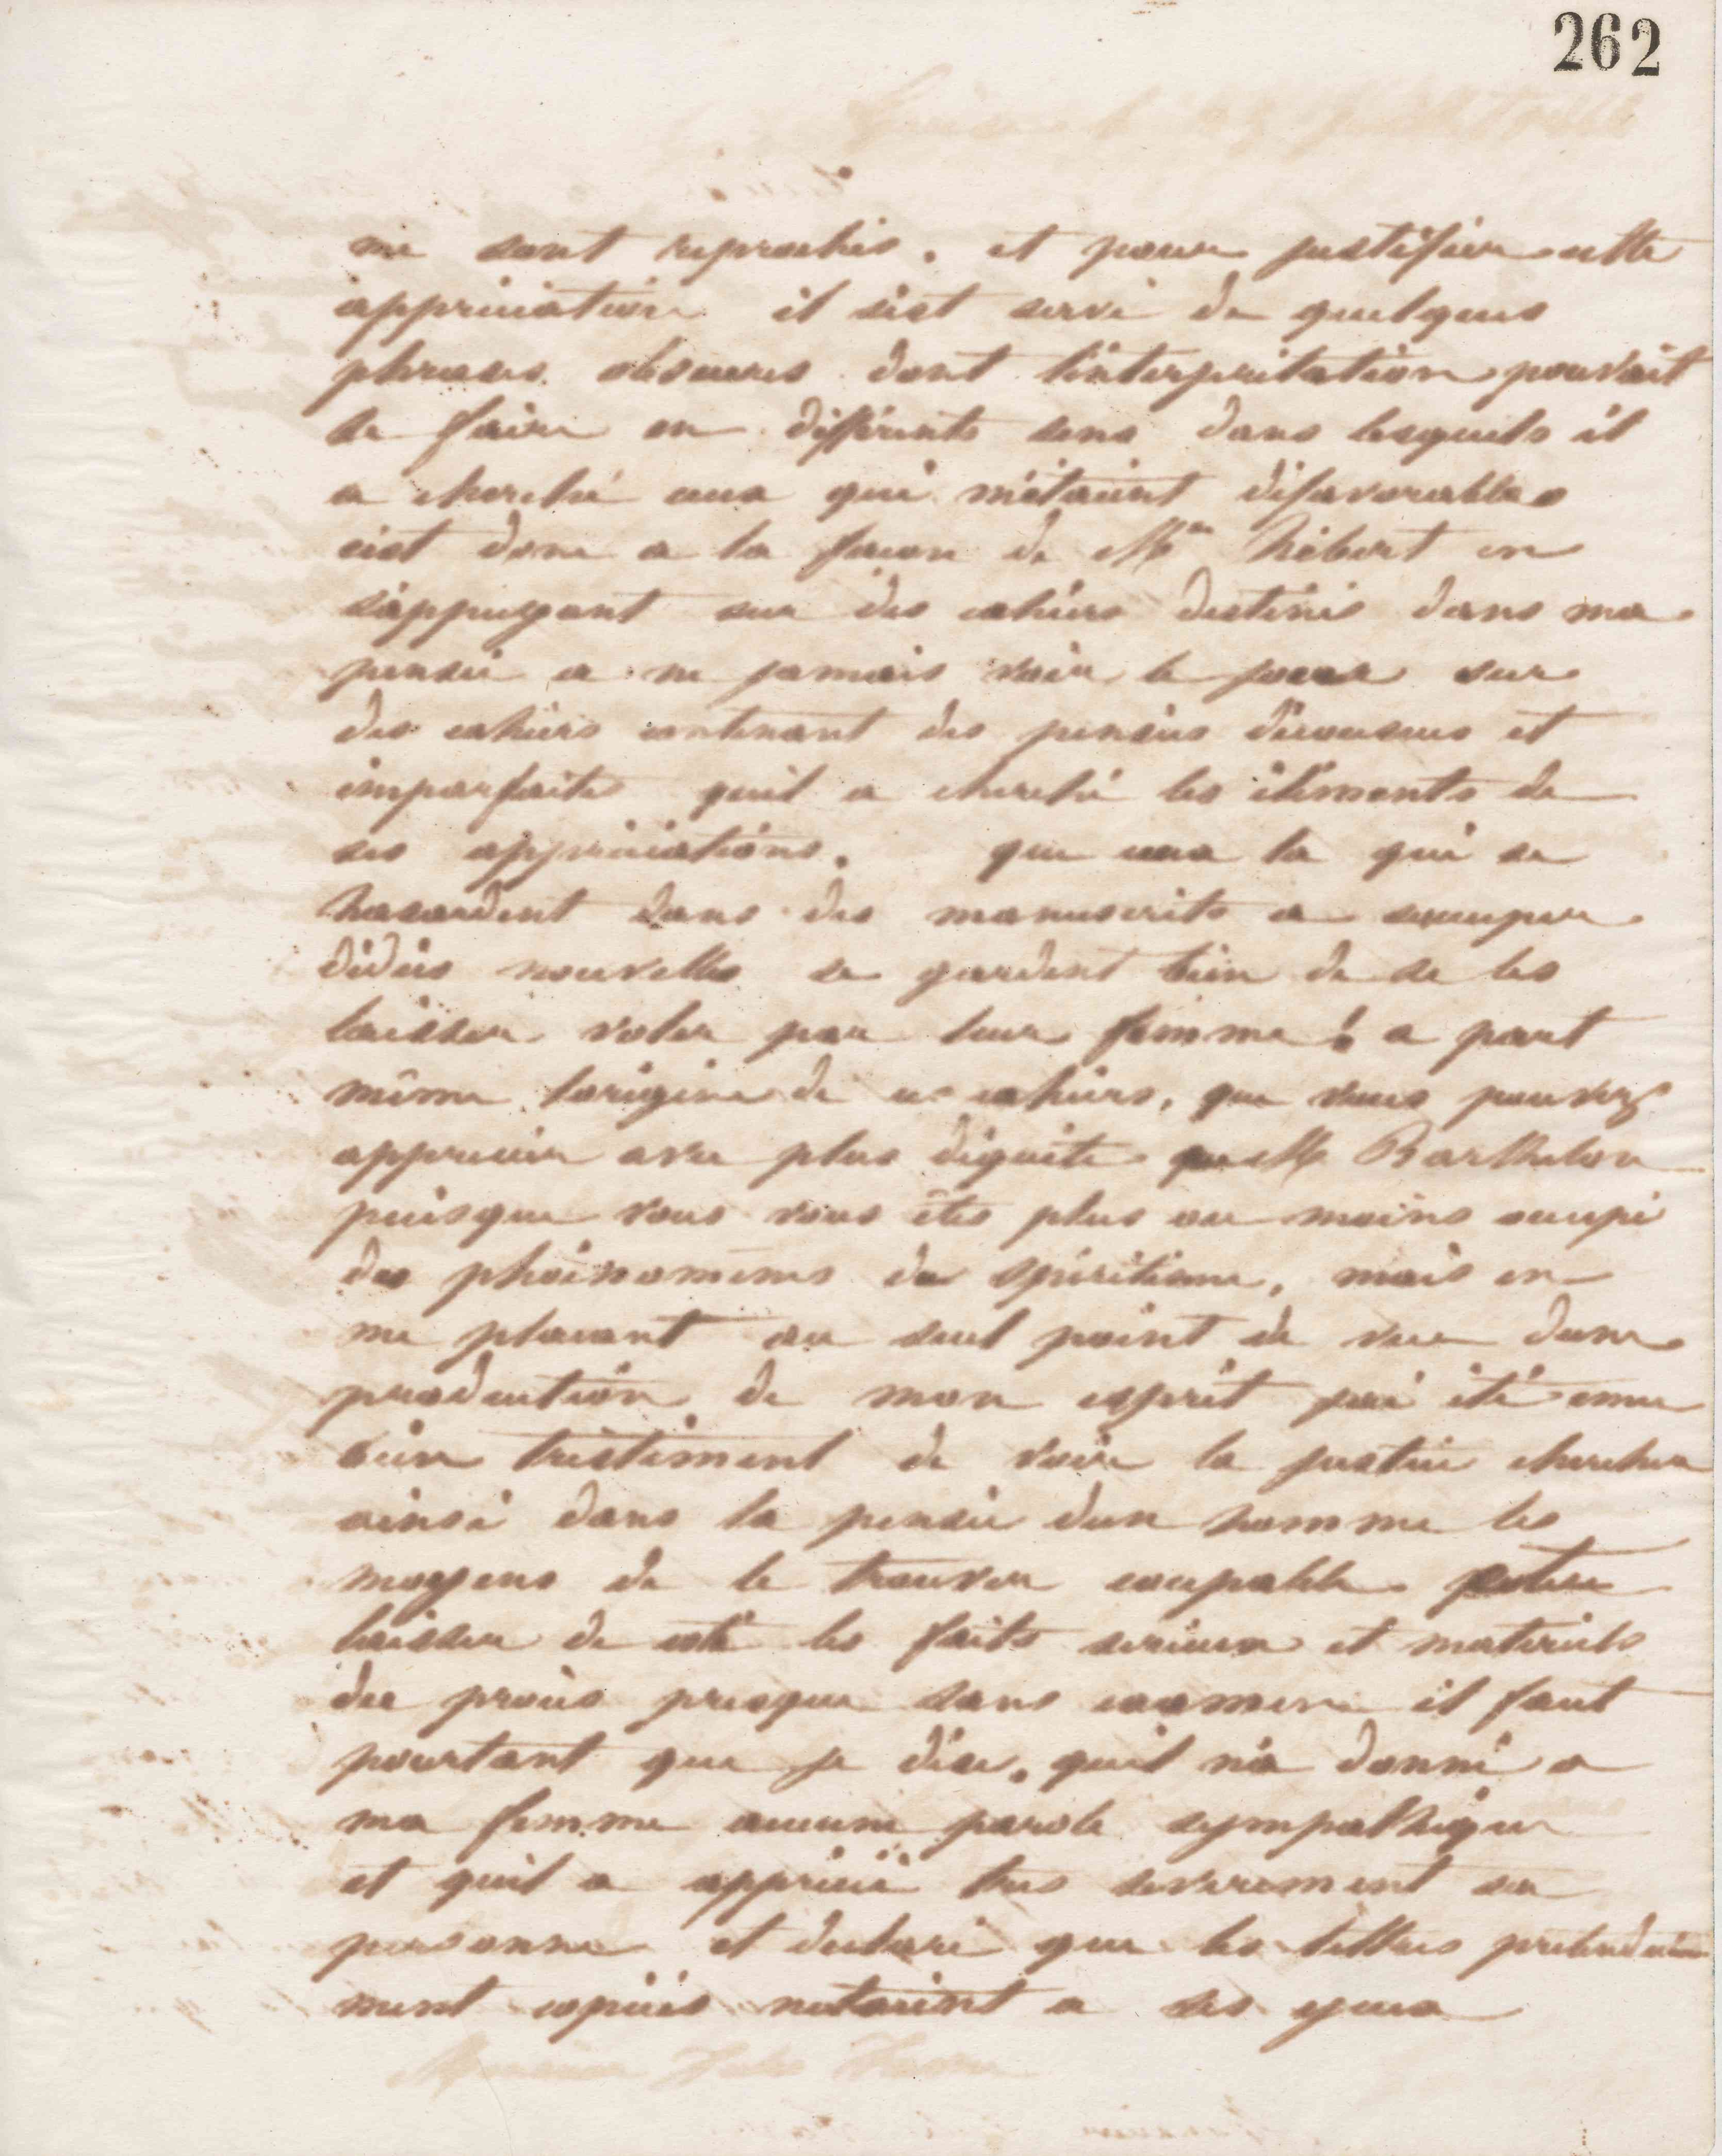 262
me sont reprochés. et pour justifier cette
appréciation il s'est servi de quelques
phrases obscures dont l'interprétation pouvait
se faire en différents sens dans lesquels il
a cherché ceux qui m'étaient défavorables
c'est donc a la facon de Mme hébert en
s'appuyant sur des cahiers destinés dans ma
pensée a ne jamais voir le jour sur
des cahiers contenant des pensées décousues et
imparfaites qu'il a cherché les éléments de
ses appréciations. que ceux la qui se
hasardent dans des manuscrits a s'occuper
d'idées nouvelles se gardent bien de se les
laisser voler par leur femme! a part
même l'origine de ces cahiers, que vous pouvez
apprecier avec plus d'équité que M Barthelon
puisque vous vous êtes plus ou moins occupé
des phénomènes du spiritisme, mais en
me placant au seul point de vue d'une
production de mon esprit j'ai été emu
bien tristement de voir la justice chercher
ainsi dans la pensée d'un homme les
moyens de le trouver coupable
laisser de coté les faits serieux et materiels
du procès presque sans examen il faut
pourtant que je dise. qu'il n'a donné a
ma femme aucune parole sympathique
et qu'il a apprécié tres severement sa
personne et declaré que les lettres pretendue
ment copiées n'etaient a ses yeux